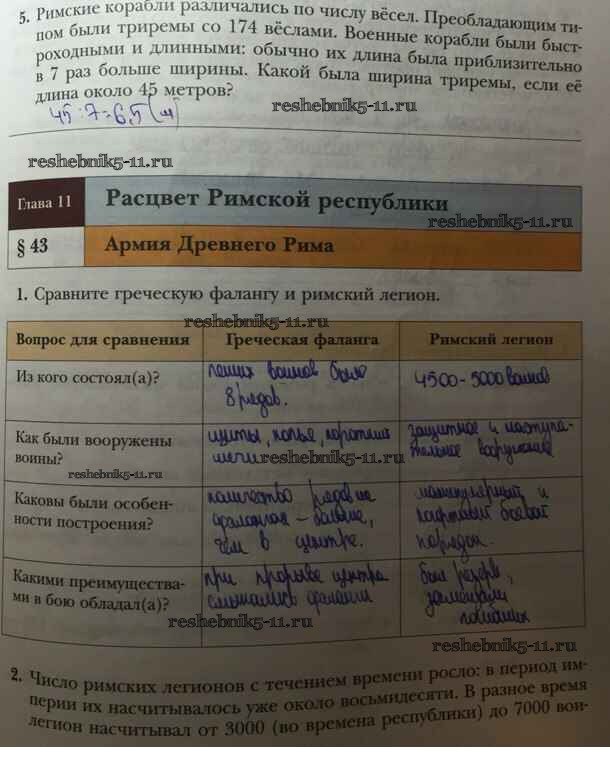 5. Римские корабли различались по числу вёсел. Преобладающим ти-
пом были триремы со 174 вёслами. Военные корабли были быст-
роходными и длинными: обычно их длина была приблизительно
в 7 раз больше ширины. Какой была ширина триремы, если её
длина около 45 метров?
reshebnik5-11.ru
45 : 7 = 6,5 (м)
reshebnik5-11.ru
Глава 11
Расцвет Римской республики
reshebnik5-11.ru
§ 43
Армия Древнего Рима
1. Сравните греческую фалангу и римский легион.
reshebnik5-11.ru
Вопрос для сравнения Греческая фаланга Римский легион
Из кого состоял(а)?
пеших воинов было
8 рядов.
4500-5000 воинов
Как были вооружены
воины?
reshebnik5-11.ru
щиты, копье, короткие
мечи
reshebnik5-11.ru
защитное и наступа-
тельное вооружение
Каковы были особен-
ности построения?
количество рядов на
флангах - больше,
чем в центре.
манипулярный и
боевой
порядок.
Какими преимущества-
ми в бою обладал(а)?
при прорыве центра
смыкались фланги
был резерв,
заменяли
погибших
reshebnik5-11.ru
2. Число римских легионов с течением времени росло: в период им-
перии их насчитывалось уже около восьмидесяти. В разное время
легион насчитывал от 3000 (во времена республики) до 7000 вои-